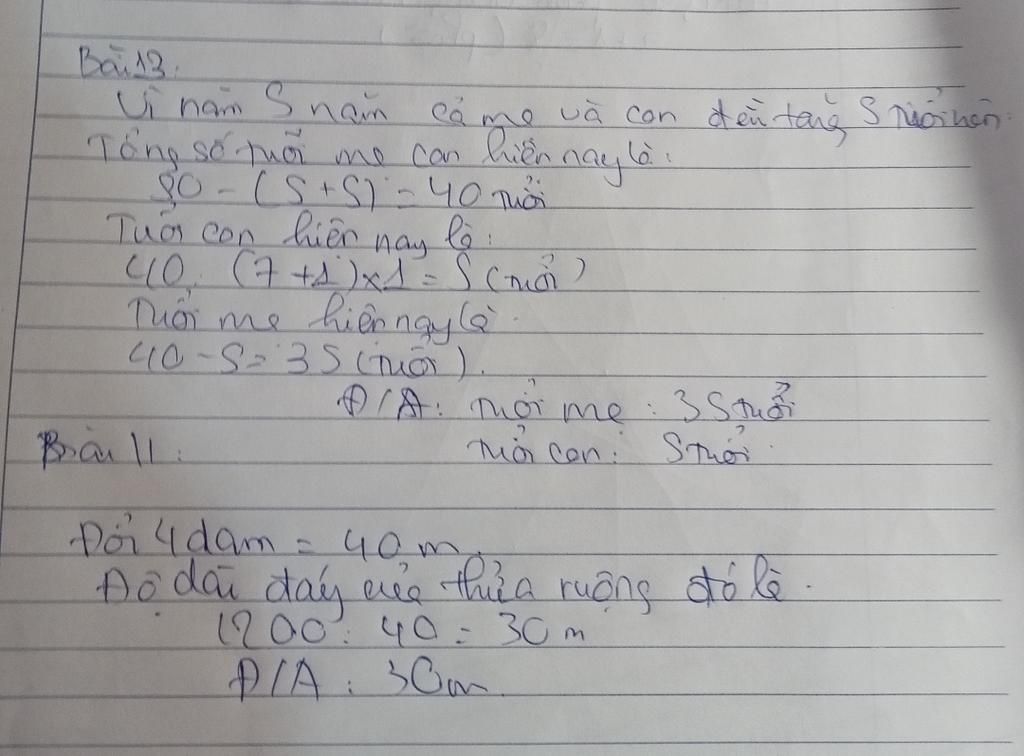 Bài 13.
Vì năm 5 năm cả mẹ và con đều tăng 5 tuổi nên:
Tổng số tuổi mẹ con hiện nay là:
50 - (5 + 5) = 40 tuổi
Tuổi con hiện nay là:
40 : (7 + 1) x 1 = 5 (tuổi)
Tuổi mẹ hiện nay là.
40 - 5 = 35 (tuổi).
Đ/A: tuổi mẹ : 35 tuổi
Bài 11 : tuổi con : 5 tuổi.
Đổi 4 dam = 40 m.
Độ dài đáy của thửa ruộng đó là.
1200 : 40 = 30 m
Đ/A : 30m.